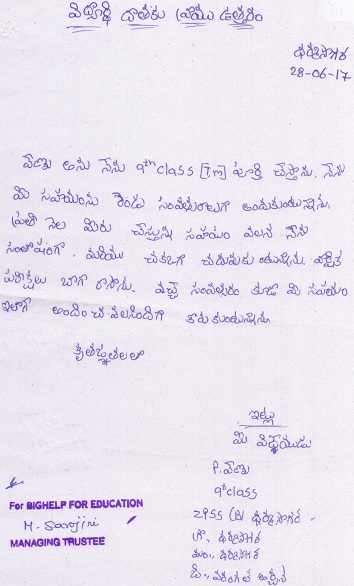 విద్యార్థి దాతకు వ్రాయు ఉత్తరం
ధర్మసాగర
28-06-17
వేణు అను నేను 9th class [Tm] పూర్తి చేస్తాను. నేను
మీ సహాయంను రెండు సంవత్సరాలుగా అందుకుంటున్నాను.
ప్రతి నెల మీరు చేస్తున్న సహాయం వలన నేను
సంతోషంగా, మరియు చక్కగా చదువుకుంటున్నాను. వార్షిక
పరీక్షలు బాగా రాశాను. వచ్చే సంవత్సరం కూడా మీ సహాయం
ఇలాగే అందించవలసిందిగా కోరుకుంటున్నాను.
కృతజ్ఞతలతో
ఇట్లు
మీ విధేయుడు
P. వేణు
9th class
ZPSS (B) ధర్మసాగర
గ్రా., ధర్మసాగర
మం., ధర్మసాగర
జి., వరంగల్ అర్బన్
For BIGHELP FOR EDUCATION
M. Sarojini
MANAGING TRUSTEE